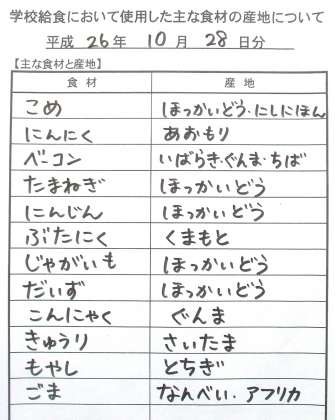 学校給食において使用した主な食材の産地について
平成 26 年 10 月 28 日分
【主な食材と産地】
食材 産地
こめ ほっかいどう・にしにほん
にんにく あおもり
ベーコン いばらき・ぐんま・ちば
たまねぎ ほっかいどう
にんじん ほっかいどう
ぶたにく くまもと
じゃがいも ほっかいどう
だいず ほっかいどう
こんにゃく ぐんま
きゅうり さいたま
もやし とちぎ
ごま なんべい・アフリカ